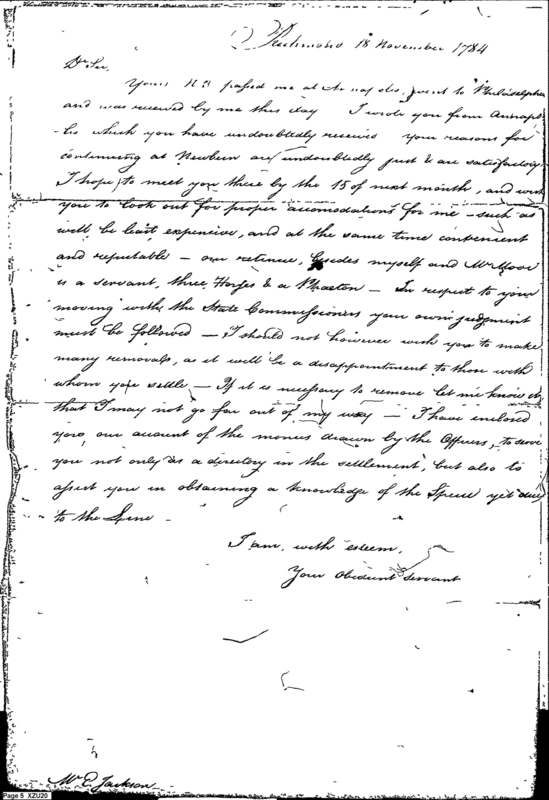 Richmond 18 November 1784
Dr Sir,
Yours N 3 passed me at Annapolis, went to Philadelphia
and was received by me this day I wrote you from Annapo-
-lis which you have undoubtedly received your reasons for
continuing at Newbern are undoubtedly just & are satisfactory
I hope to meet you there by the 15 of next month, and wish
you to look out for proper accomodations for me - such as
will be least expensive, and at the same time convenient
and reputable - our retinue, besides myself and Mr Moor
is a servant, three Horses & a Phaeton - In respect to your
moving with the State Commissioners your own judgment
must be followed - I should not however wish you to make
many removals, as it will be a disappointment to those with
whom you settle - If it is necessary to remove let me know it
that I may not go far out of my way - I have enclosed
you, our account of the monies drawn by the Officers, to serve
you not only as a directory in the settlement, but also to
assist you in obtaining a knowledge of the Specie yet due
to the Line -
I am, with esteem,
Your obedient servant
Mr E Jackson
Page 5 XZU20